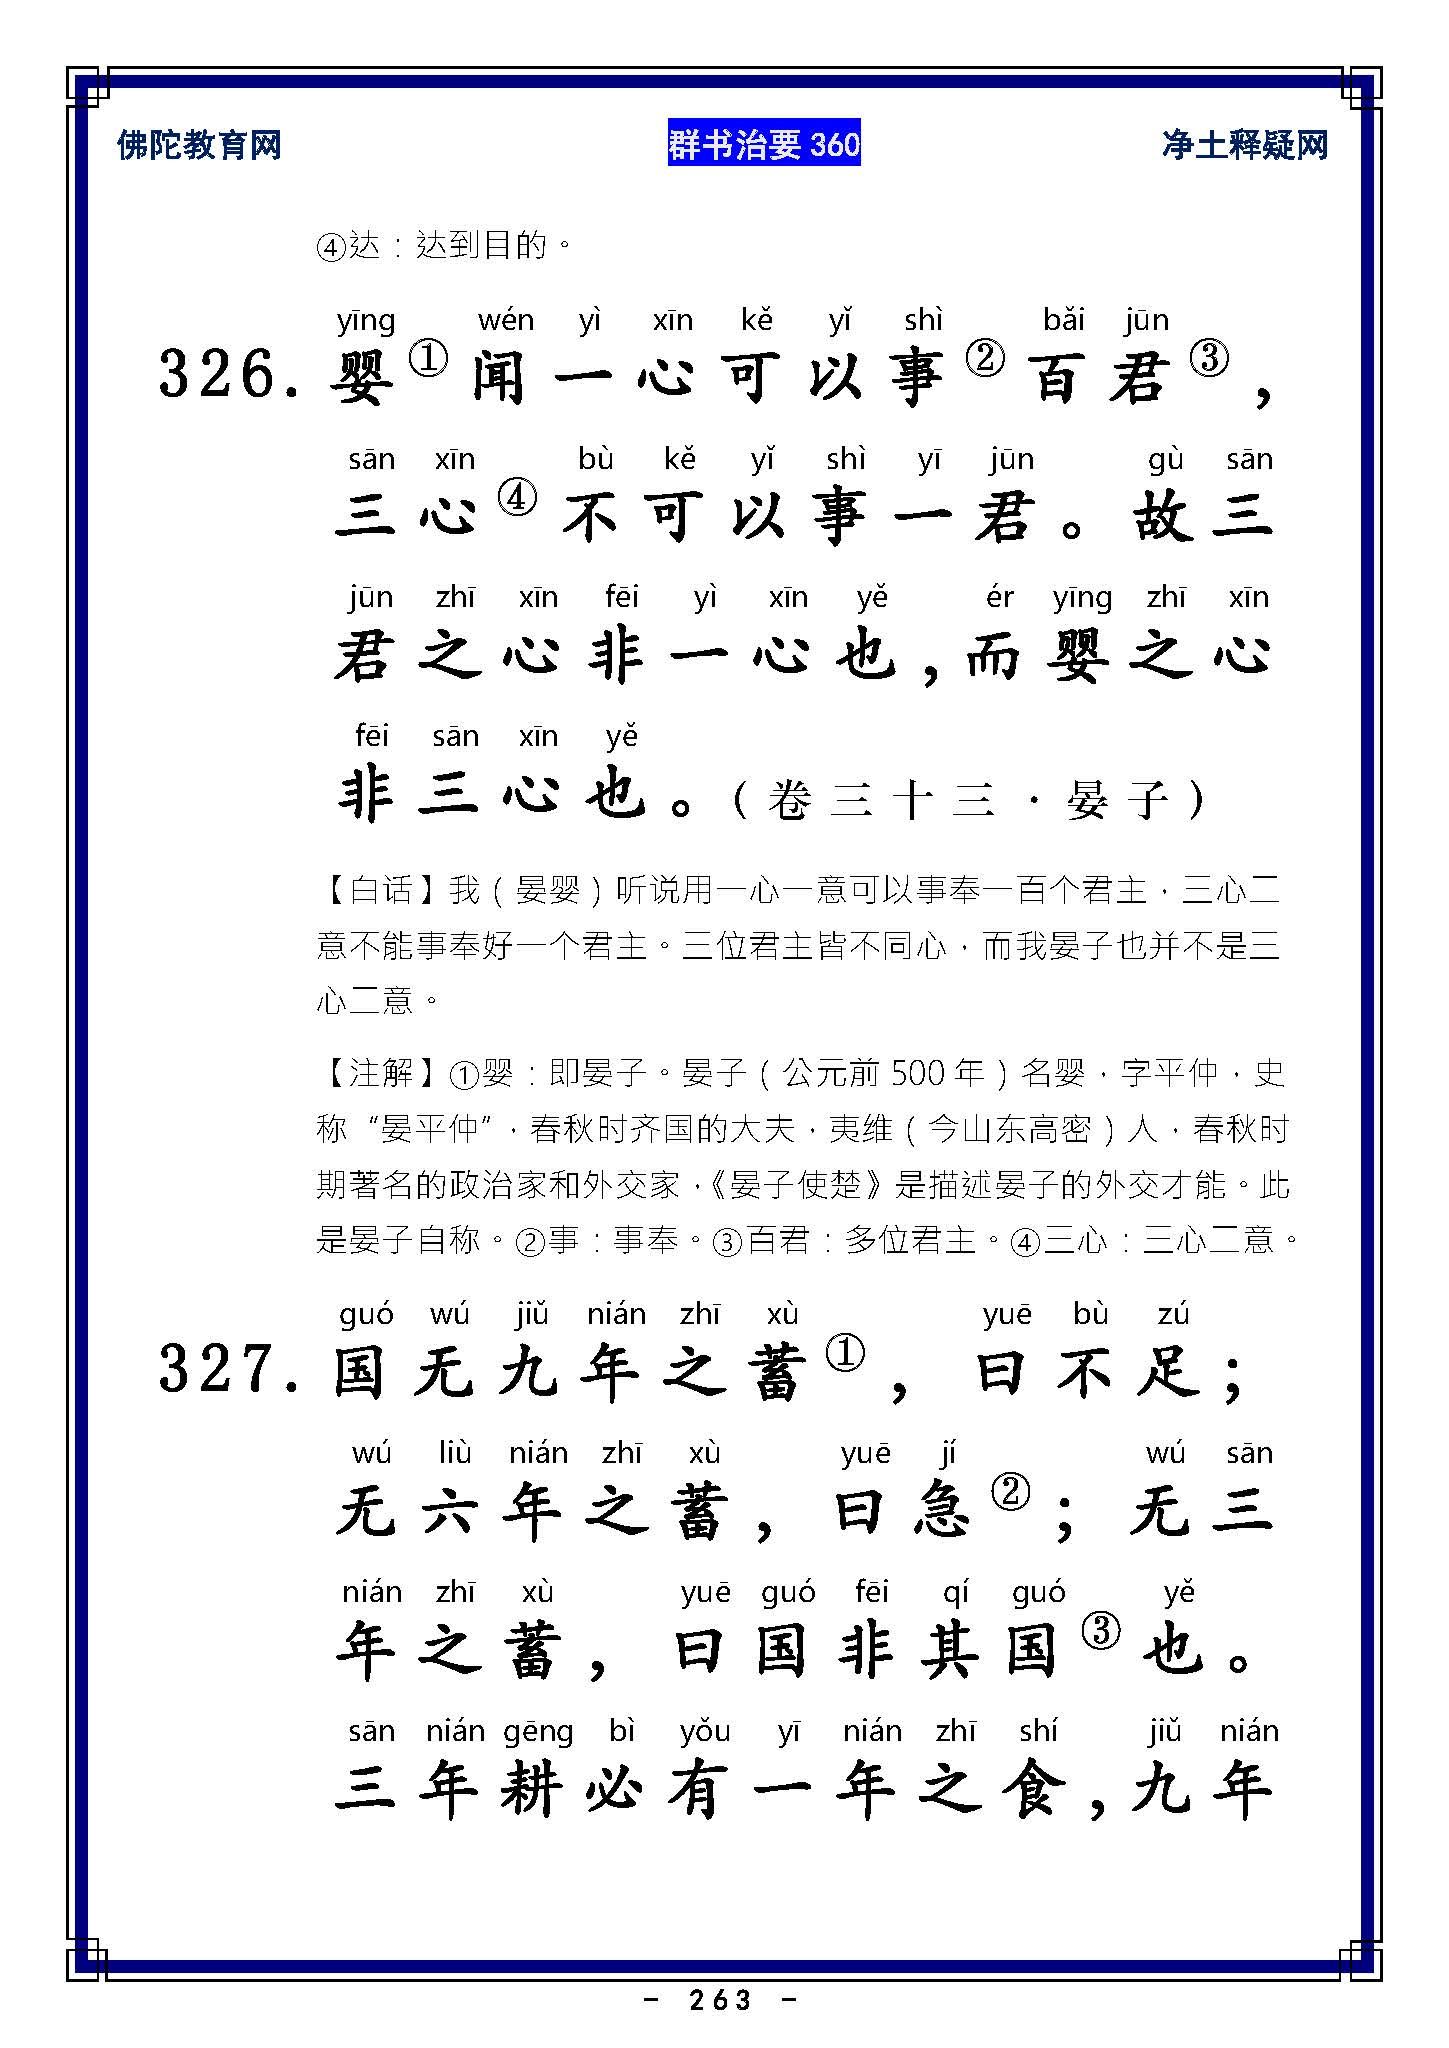 佛陀教育网 群书治要 360 净土释疑网
④达：达到目的。
yīng wén yì xīn kě yǐ shì bǎi jūn
326. 婴① 闻一心可以事② 百君③，
sān xīn bù kě yǐ shì yī jūn gù sān
三心④ 不可以事一君。故三
jūn zhī xīn fēi yì xīn yě ér yīng zhī xīn
君之心非一心也，而婴之心
fēi sān xīn yě
非三心也。（卷三十三·晏子）
【白话】我（晏婴）听说用一心一意可以事奉一百个君主，三心二
意不能事奉好一个君主。三位君主皆不同心，而我晏子也并不是三
心二意。
【注解】①婴：即晏子。晏子（公元前 500 年）名婴，字平仲，史
称“晏平仲”，春秋时齐国的大夫，夷维（今山东高密）人，春秋时
期著名的政治家和外交家，《晏子使楚》是描述晏子的外交才能。此
是晏子自称。②事：事奉。③百君：多位君主。④三心：三心二意。
guó wú jiǔ nián zhī xù yuē bù zú
327. 国无九年之蓄①，曰不足；
wú liù nián zhī xù yuē jí wú sān
无六年之蓄，曰急②；无三
nián zhī xù yuē guó fēi qí guó yě
年之蓄，曰国非其国③也。
sān nián gēng bì yǒu yī nián zhī shí jiǔ nián
三年耕必有一年之食，九年
- 263 -